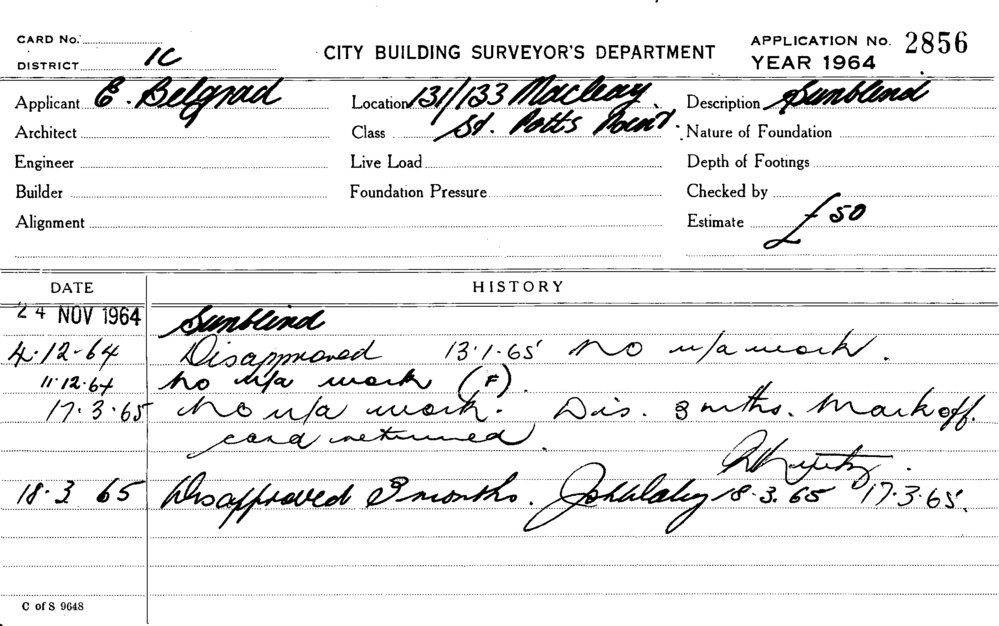 CARD No.
DISTRICT 1C
CITY BUILDING SURVEYOR'S DEPARTMENT
APPLICATION No. 2856
YEAR 1964
Applicant E. Belgrad
Location 131/133 Macleay
Description Sunblind
Architect
Class St. Potts Point.
Nature of Foundation
Engineer
Live Load
Depth of Footings
Builder
Foundation Pressure
Checked by
Alignment
Estimate £50
DATE HISTORY
24 NOV 1964 Sunblind
4.12.64 Disapproved 13.1.65 No u/a work.
11.12.64 No u/a work (F).
17.3.65 No u/a work. Dis. 3 mths. Mark off.
card returned.
18.3 65 Disapproved 3 months. 18.3.65 17.3.65.
C of S 9648